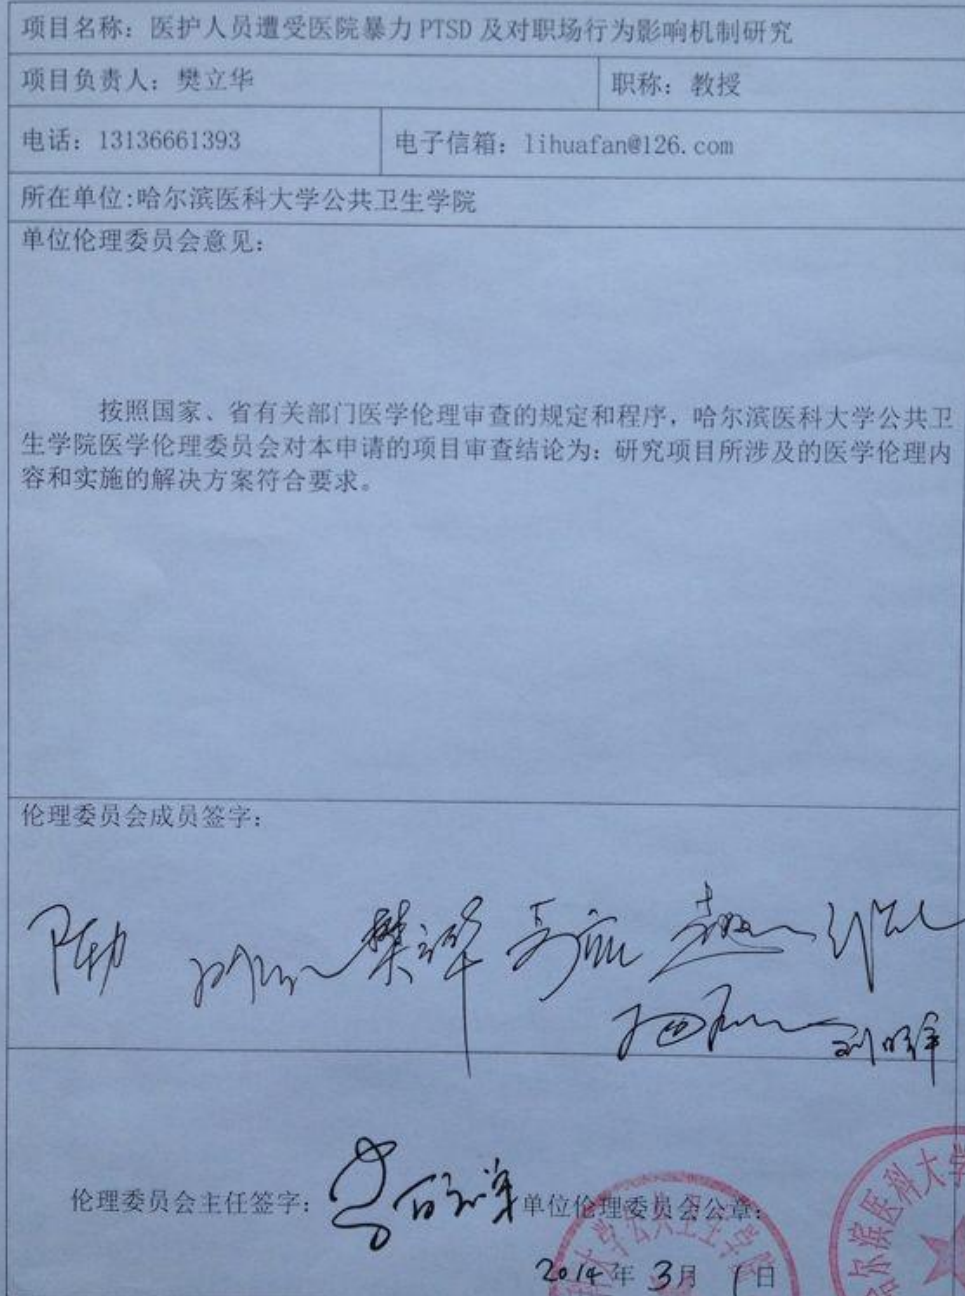 项目名称：医护人员遭受医院暴力 PTSD 及对职场行为影响机制研究
项目负责人：樊立华
职称：教授
电话：13136661393
电子信箱：lihuafan@126.com
所在单位:哈尔滨医科大学公共卫生学院
单位伦理委员会意见：
按照国家、省有关部门医学伦理审查的规定和程序，哈尔滨医科大学公共卫
生学院医学伦理委员会对本申请的项目审查结论为：研究项目所涉及的医学伦理内
容和实施的解决方案符合要求。
伦理委员会成员签字：
樊立华
伦理委员会主任签字：
单位伦理委员会公章：
2014 年 3 月 1 日
哈尔滨医科大学
大学公共卫生学院